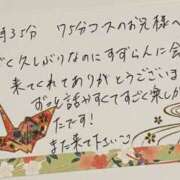 時35分 75分コースのお兄様へ
ごく久しぶりなのにすずらんに会
来てくれてありがとうござい
ずっと話かすくてすごく楽しか
たです!
また来て下さい